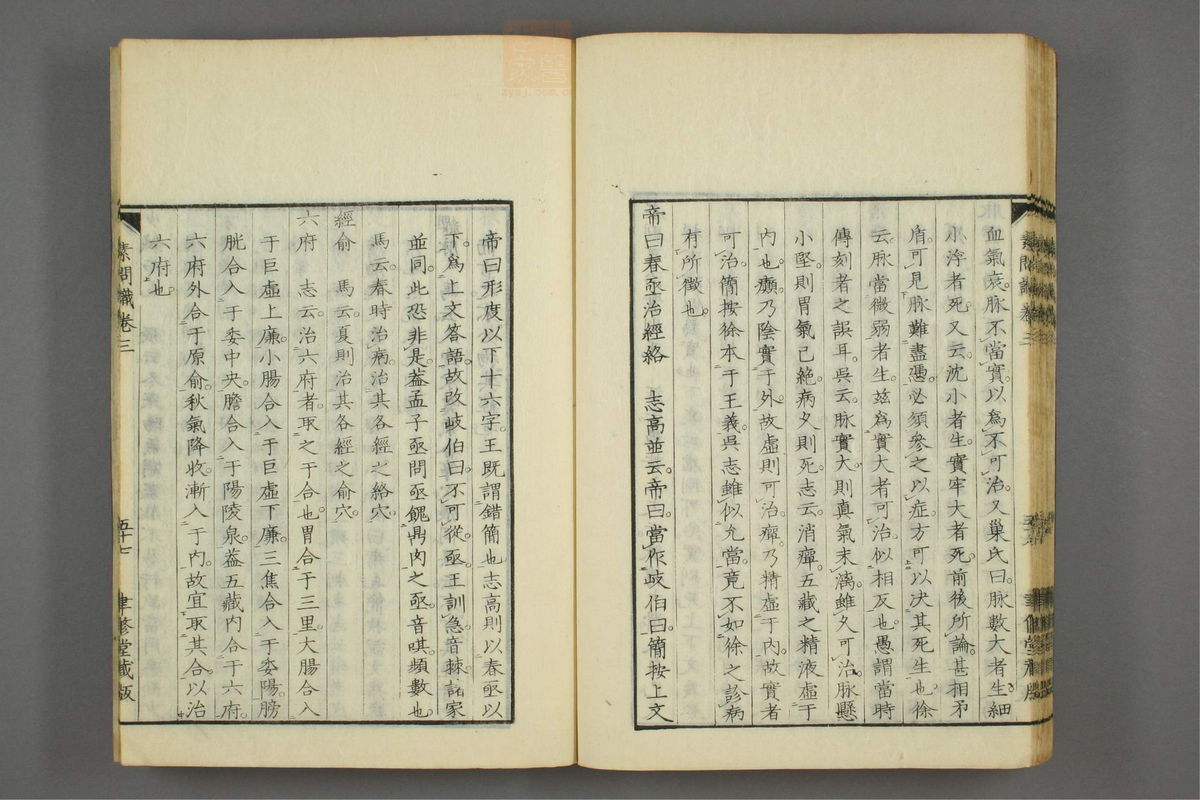 血氣衰脉不當實以爲不可治又巢氏曰脉數大者生細
小浮者死又云沈小者生實牢大者死前後所論甚相矛
盾可見脉難盡憑必須參之以症方可以决其死生也徐
云脉當微弱者生兹爲實大者可治似相反也愚謂當時
傳刻者之誤耳吳云脉實大則真氣未漓雖久可治脉懸
小堅則胃氣已絶病久則死志云消癉五藏之精液虛于
内也癲乃陰實于外故虛則可治癉乃精虛于内故實者
可治簡按徐本于王義吳志雖似允當竟不如徐之彭病
有所徵也
帝曰春亟治經絡 志高並云帝曰當作岐伯曰簡按上文
帝曰形度以下十六字王既謂錯簡也志高則以春亟以
下爲上文答語故改岐伯曰不可從亟王訓急音棘諸家
並同此恐非是葢孟子亟問亟餽鼎肉之亟音唭頻數也
馬云春時治病治其各經之絡穴
經俞 馬云夏則治其各經之俞穴
六府 志云治六府者取之于合也胃合于三里大腸合入
于巨虛上廉小腸合入于巨虛下廉三焦合入于委陽膀
胱合入于委中央膽合入于陽陵泉葢五藏内合于六府
六府外合于原俞秋氣降收漸入于内故宜取其合以治
六府也
素問識卷三
五十七
聿修堂藏版